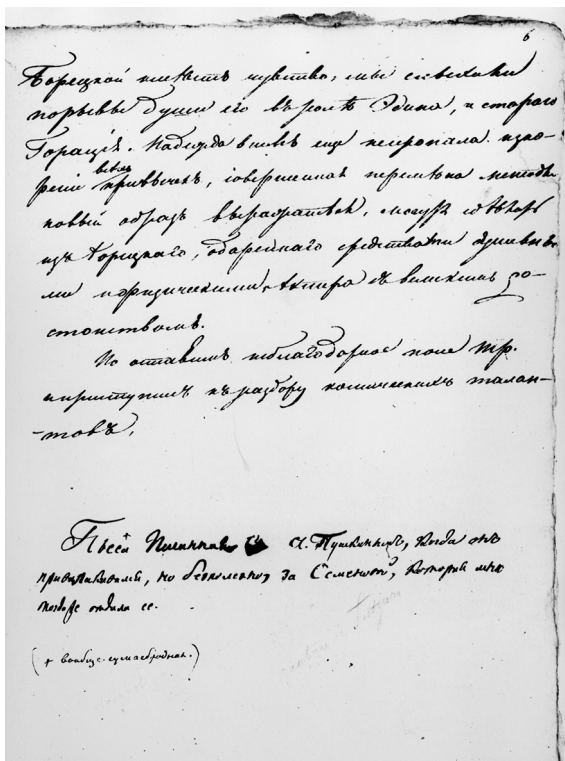 6
Борецкой имѣетъ чувство, мы слыхали
порывы души его въ ролѣ Эдипа, и стараго
Горація. Надежда въ немъ еще непропала. иско-
всѣхъ
реніе привычекъ, совершенная перемѣна методы
новый образъ выражаться, могутъ сдѣлать
изъ Борецкаго, одареннаго средствами душевны-
ми и физическими, актера съ великимъ до-
стоинствомъ.
Но оставимъ неблагодарное поле тр.
и приступимъ къ разбору комическихъ талан-
-товъ.
Пьеса + писанная А. Пушкинымъ, когда онъ
приволакивался, но безполезно, за Семеновой, которая мнѣ
тогда же отдала ее.
(+ вообще сумасбродная.)